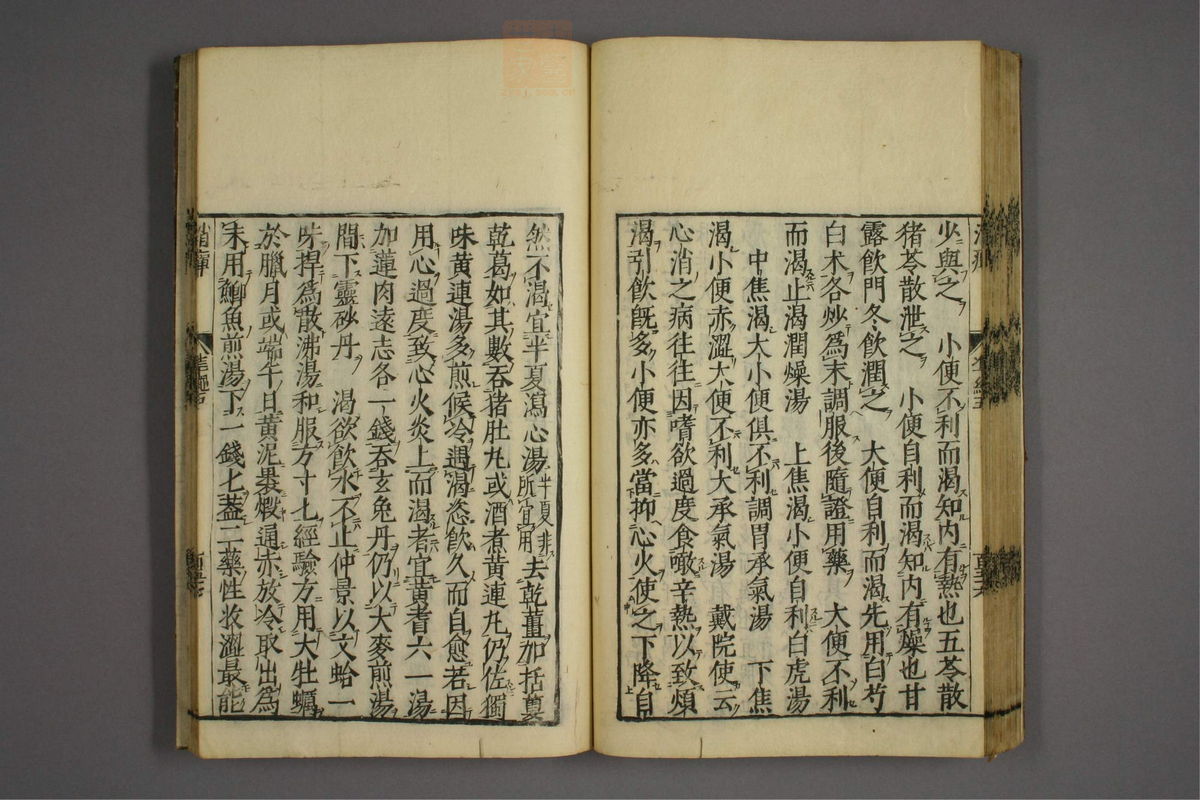 少與之　小便不利而渴知内有熱也五苓散
猪苓散泄之　小便自利而渴知内有燥也甘
露飲門冬飲潤之　大便自利而渴先用白芍
白朮各炒爲末調服後隨證用藥　大便不利
而渴止渴潤燥湯　上焦渴小便自利白虎湯
中焦渴大小便俱不利調胃承氣湯　下焦
渴小便赤澀大便不利大承氣湯　戴院使云
心消之病往往因嗜欲過度食噉辛熱以致煩
渴引飲旣多小便亦多當抑心火使之下降自
然不渴宜半夏瀉心湯半夏非所宜用去乾薑加栝蔞
乾葛如其數吞猪肚丸或酒煮黄連丸仍佐獨
味黄連湯多煎候冷遇渴恣飲久而自愈若因
用心過度致心火炎上而渴者宜黄耆六一湯
加蓮肉遠志各一錢吞玄兔丹仍以大麥煎湯
間下靈砂丹　渴欲飲水不止仲景以文蛤一
味捍爲散沸湯和服方寸匕經驗方用大牡蠣
於臘月或端午日黄泥裹煅通赤放冷取出爲
末用鯽魚煎湯下一錢匕蓋二藥性收澀最能
消癉